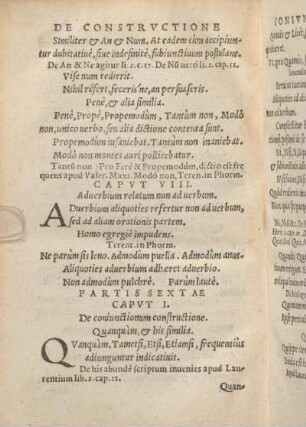 DE CONSTRVCTIONE
Similiter & An & Num. At eadem cùm accipiun-
tur dubitatiuè, siue indefinitè, subiunctiuum postulant.
De An & Ne agitur li.2.c.17. De Nũ uerò li.2.cap.51.
Vise num redierit.
Nihil refert, feceris ne, an persuaseris.
Penè, & alia similia.
Penè, Propè, Propemodùm, Tantùm non, Modò
non, unico uerbo, seu alia dictione contenta sunt.
Propemodùm insaniebat. Tantùm non inaniebat.
Modò non montes auri pollicebatur.
Tantũ non Pro Ferè & Propemodùm, dictio est fre
quens apud Valer. Max. Modò non, Teren. in Phorm.
CAPVT VIII.
Aduerbium relatum non ad uerbum.
ADuerbium aliquoties refertur non ad uerbum,
sed ad aliam orationis partem.
Homo egregiè impudens.
Teren. in Phorm.
Ne parùm sis leno. Admodùm puella. Admodùm anus.
Aliquoties aduerbium adhæret aduerbio.
Non admodùm pulchrè. Parùm lautè.
PARTIS SEXTAE
CAPVT I.
De coniunctionum constructione.
Quanquàm, & his similia.
QVanquàm, Tametsi, Etsi, Etiamsi, frequentius
adiunguntur indicatiuis.
De his abundè scriptum inuenies apud Lau
rentium lib.2.cap.11.
Quan-